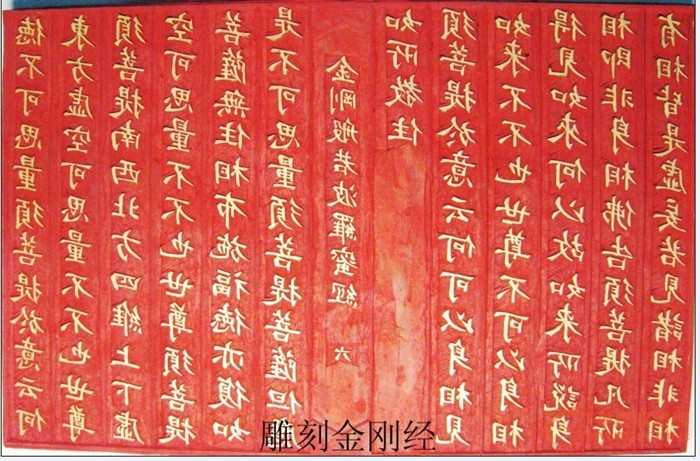 德不可思量須菩提於意云何
東方虛空可思量不不也世尊
須菩提南西北方四維上下虛
空可思量不不也世尊須菩提
菩薩無住相布施福德亦復如
是不可思量須菩提菩薩但
金剛般若波羅蜜經 六
如所教住
須菩提於意云何可以身相見
如來不不也世尊不可以身相
得見如來何以故如來所說身
相即非身相佛告須菩提凡所
有相皆是虛妄若見諸相非相
雕刻金刚经